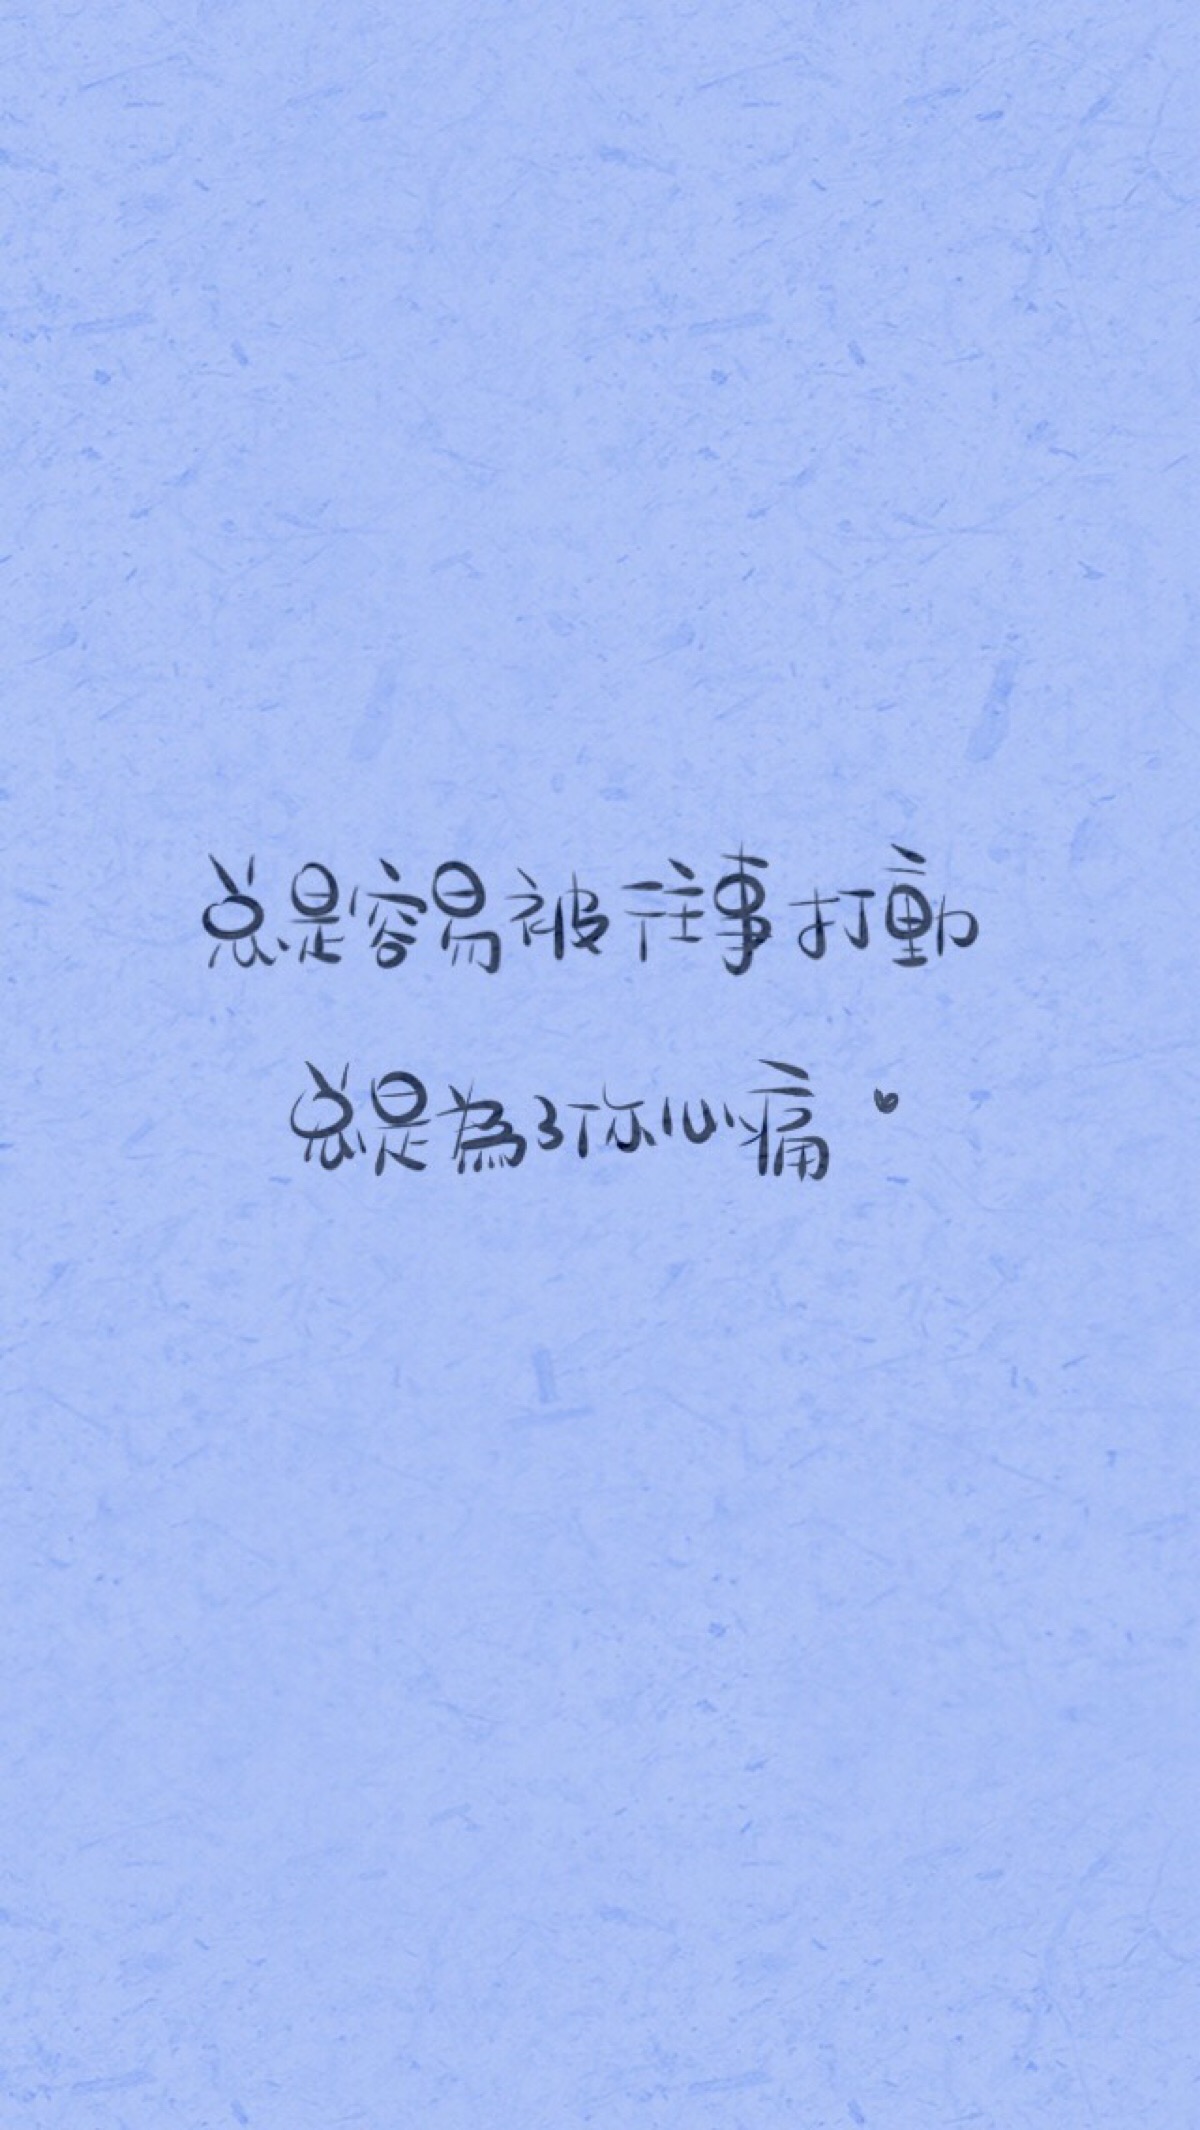 总是容易被往事打動
总是為了你心痛